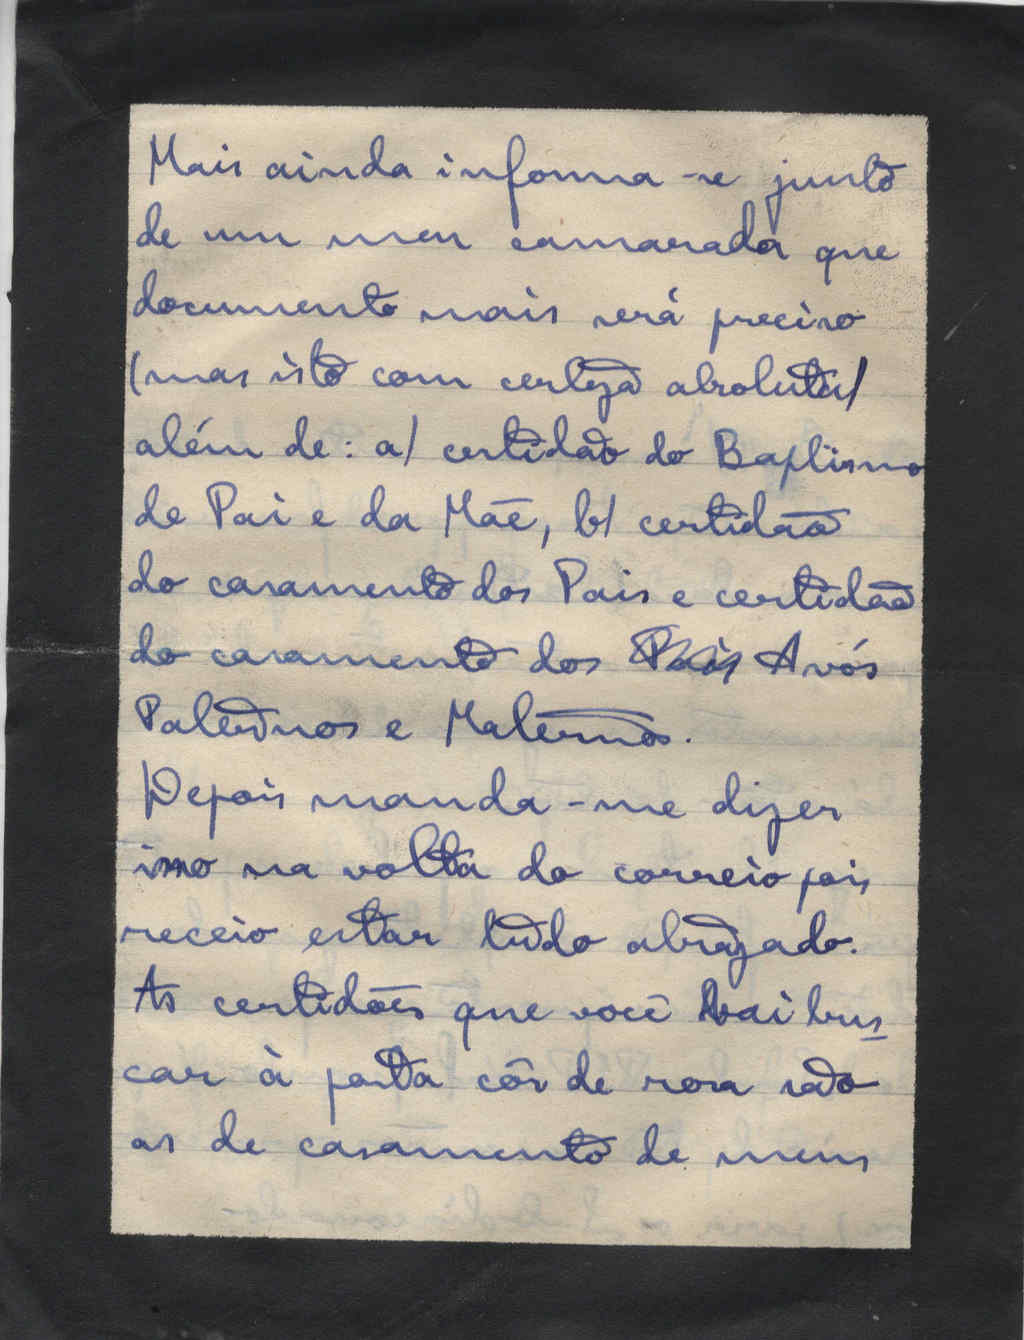 Mais ainda informa-se junto
de um meu camarada que
documento mais será preciso
(mas isto com certeza absoluta)
além de: a) certidão do Baptismo
de Pai e da Mãe, b) certidão
do casamento dos Pais e certidão
do casamento dos Pais Avós
Paternos e Maternos.
Depois manda-me dizer
isso na volta do correio pois
receio estar tudo abrazado.
As certidões que você vai bus-
car à pasta côr de rosa são
as de casamento de meus